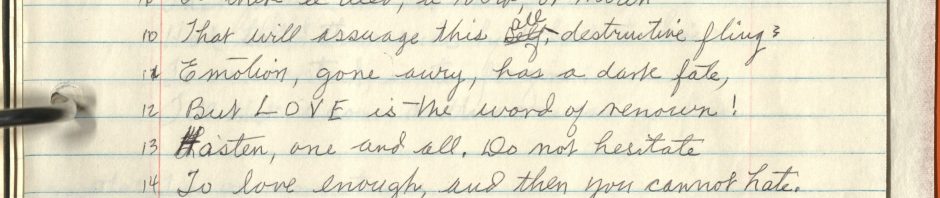 a word, or
10 That will assuage this all destructive fling?
11 Emotion, gone awry, has a dark fate,
12 But LOVE is the word of renown!
13 Hasten, one and all. Do not hesitate
14 To love enough, and then you cannot hate.